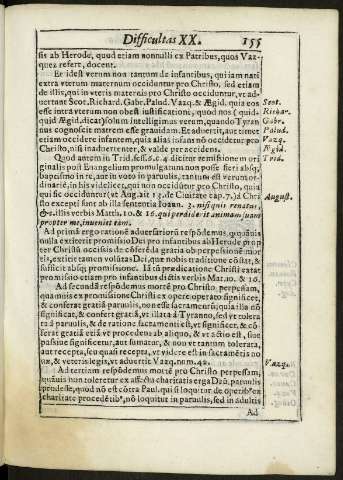 Difficultas XX. 155
sis ab Herode, quod etiam nonnulli ex Patribus, quos Vaz-
quez refert, docent.
Et idest verum non tantum de infantibus, qui iam nati
extra vterum maternum occiduntur pro Christo, sed etiam
de illis, qui in vteris maternis pro Christo occiduntur, vt ad-
uertunt Scot. Richard. Gabr. Palud. Vazq. & Ægid. quia eos
Scot.
esse intra vterum non obest iustificationi, quod nos (quid-
Richar.
quid Ægid. dicat) solum intelligimus verum, quando Tyran
Gabr.
nus cognoscit matrem esse grauidam. Et aduertit, aut timet
Palud.
etiam occidere infantem, quia alias infans nō occiditur pro
Vazq.
Christo, nisi inaduertenter, & valde per accidens.
Ægid.
Quod autem in Trid. sess. 6. c. 4 dicitur remissionem ori
Trid.
ginalis post Euangelium promulgatum non posse fieri absq;
baptismo in re, aut in voto in paruulis, tantum est verum or-
dinariè, in his videlicet, qui non occiduntur pro Christo, quia
qui sic occiduntur (vt Aug. ait 13. de Ciuitate cap. 7.) à Chri
August.
sto excepti sunt ab illa sententia Ioann. 3. nisi quis renatus,
&c. illis verbis Matth. 10. & 16. qui perdiderit animam suam
propter me, inueniet eam.
Ad primā ergo rationē aduersariorū respōdemus, q quāuis
nulla extiterit promissio Dei pro infantibus ab Herode prop-
ter Christū occisis de cōferēda gratia ob perpessionē mor-
tis, extitit tamen volūtas Dei, quæ nobis traditione cōstat, &
sufficit absq; promissione. Id tū prædicatione Christi extat
promissio etiam pro infantibus dictis verbis Mat. 10. & 16.
Ad secundā respōdemus mortē pro Christo perpessam,
quamuis ex promissione Christi ex opere operato significet,
& conferat gratiā paruulis, non esse sacramentū, quia illa nō
significat, & confert gratiā, vt illata à Tyranno, sed vt tolera
ta à paruulis, & de ratione sacramenti est, vt significet, & cō-
ferat gratiā etiā vt procedens ab aliquo, & vt actio est, siue
passiuè significetur, aut sumatur, & non vt tantum tolerata,
aut recepta, seu quasi recepta, vt videre est in sacramētis no
uæ, & veteris legis, vt aduertit Vazq. num. 42.
Vazq.
Ad tertiam respōdemus mortē pro Christo perpessam,
quāuis non toleretur ex affectu charitatis erga Deū, paruulis
prodesse, quod nō est cōtra Paul. qui si loquitur de operib⁹ ex
charitate procedētib⁹, nō loquitur in paruulis, sed in adultis
Ad